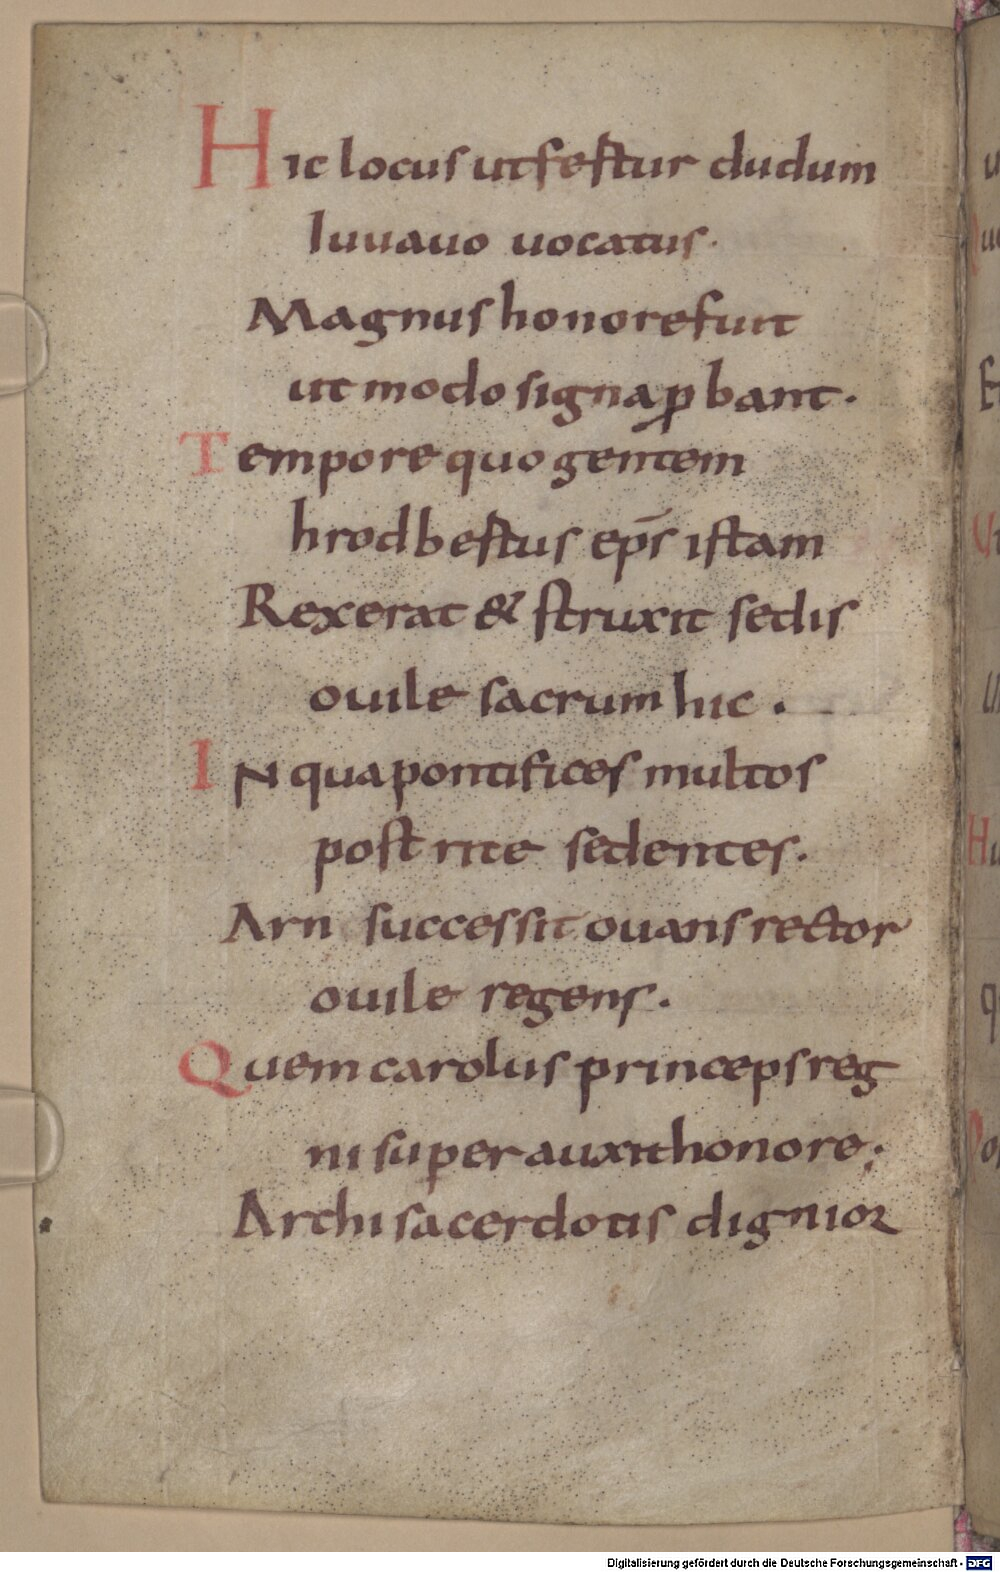 Hic locus ut fertur dudum
Iuuauo uocatus.
Magnus honore fuit
ut modo signa ꝓbant.
Tempore quo gentem
hrodbertus ep̄s istam
Rexerat & struxit sedis
ouile sacrum hic.
IN qua pontifices multos
post rite sedentes.
Arn successit ouans rector
ouile regens.
Quem carolus princeps reg
ni super auxit honore;
Archisacerdotis dignior
Digitalisierung gefördert durch die Deutsche Forschungsgemeinschaft - DFG